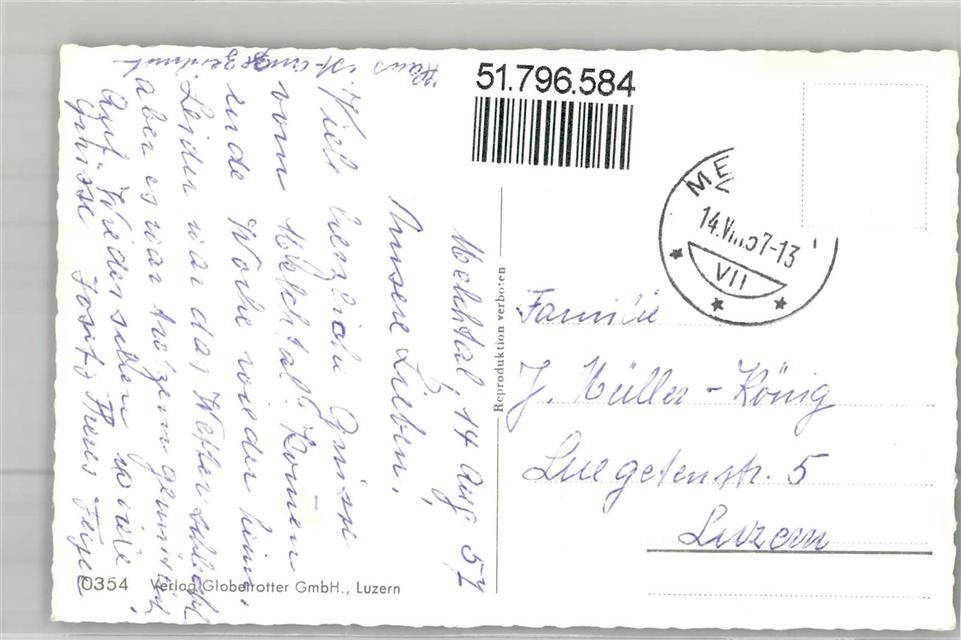 Melchtal, 14 Aug 57
Unsere Lieben!
Viele herzliche Grüsse
vom Melchtal. Komen
ende Woche wieder heim.
Leider war das Wetter schlecht
aber es war trozem gemütlich,
Auf Wiedersehen u viele
Grüsse
Haus ist angezeichnet
51.796.584
ME
14.VIII.57-13
VII
Reproduktion verboten
Familie
J. Müller-König
Luegetenstr. 5
Luzern
0354 Verlag Globetrotter GmbH., Luzern